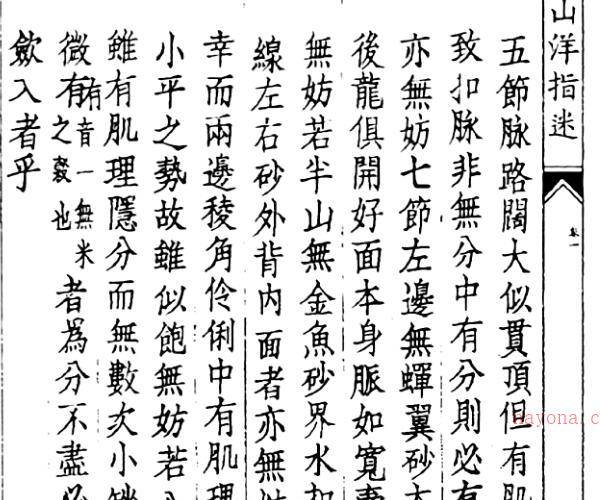 山洋指迷
卷一
五節脉路闊大似貫頂但有肌
致扣脉非無分中有分則必有
亦無妨七節左邊無蟬翼砂
後龍俱開好面本身脈如寬
無妨若半山無金魚砂界水如
線左右砂外背内面者亦無
幸而兩邊稜角伶俐中有肌理
小平之勢故雖似飽無妨若
雖有肌理隱分而無數次小
微有有音一無米之也者為分不盡必
歛入者乎
nayona.c